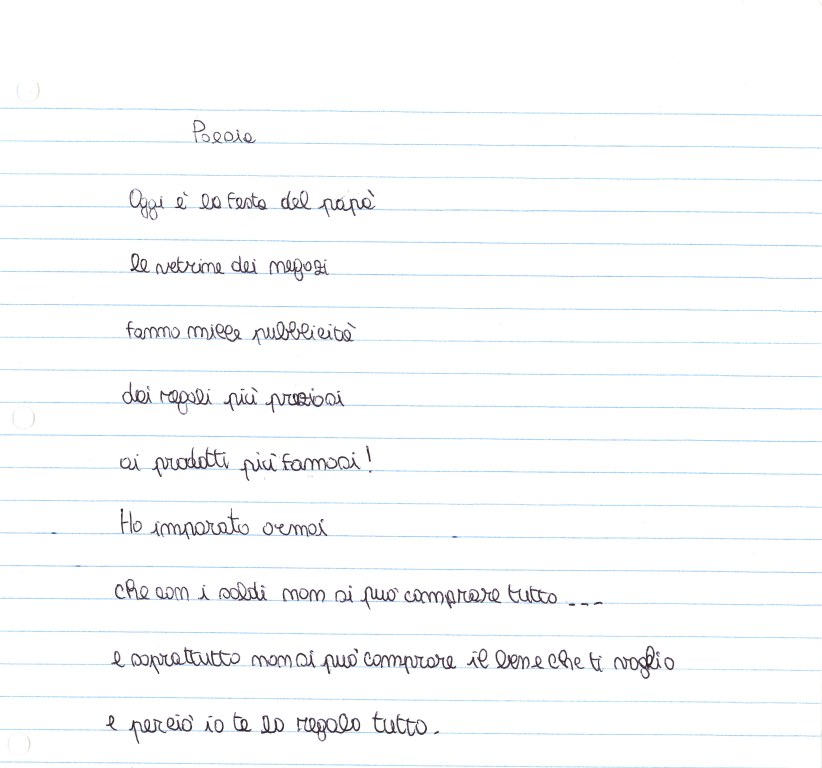 Poesia
Oggi è la festa del papà
le vetrine dei negozi
fanno mille pubblicità
dai regali più preziosi
ai prodotti più famosi!
Ho imparato ormai
che con i soldi non si può comprare tutto ---
e soprattutto non si può comprare il bene che ti voglio
e perciò io te lo regalo tutto.